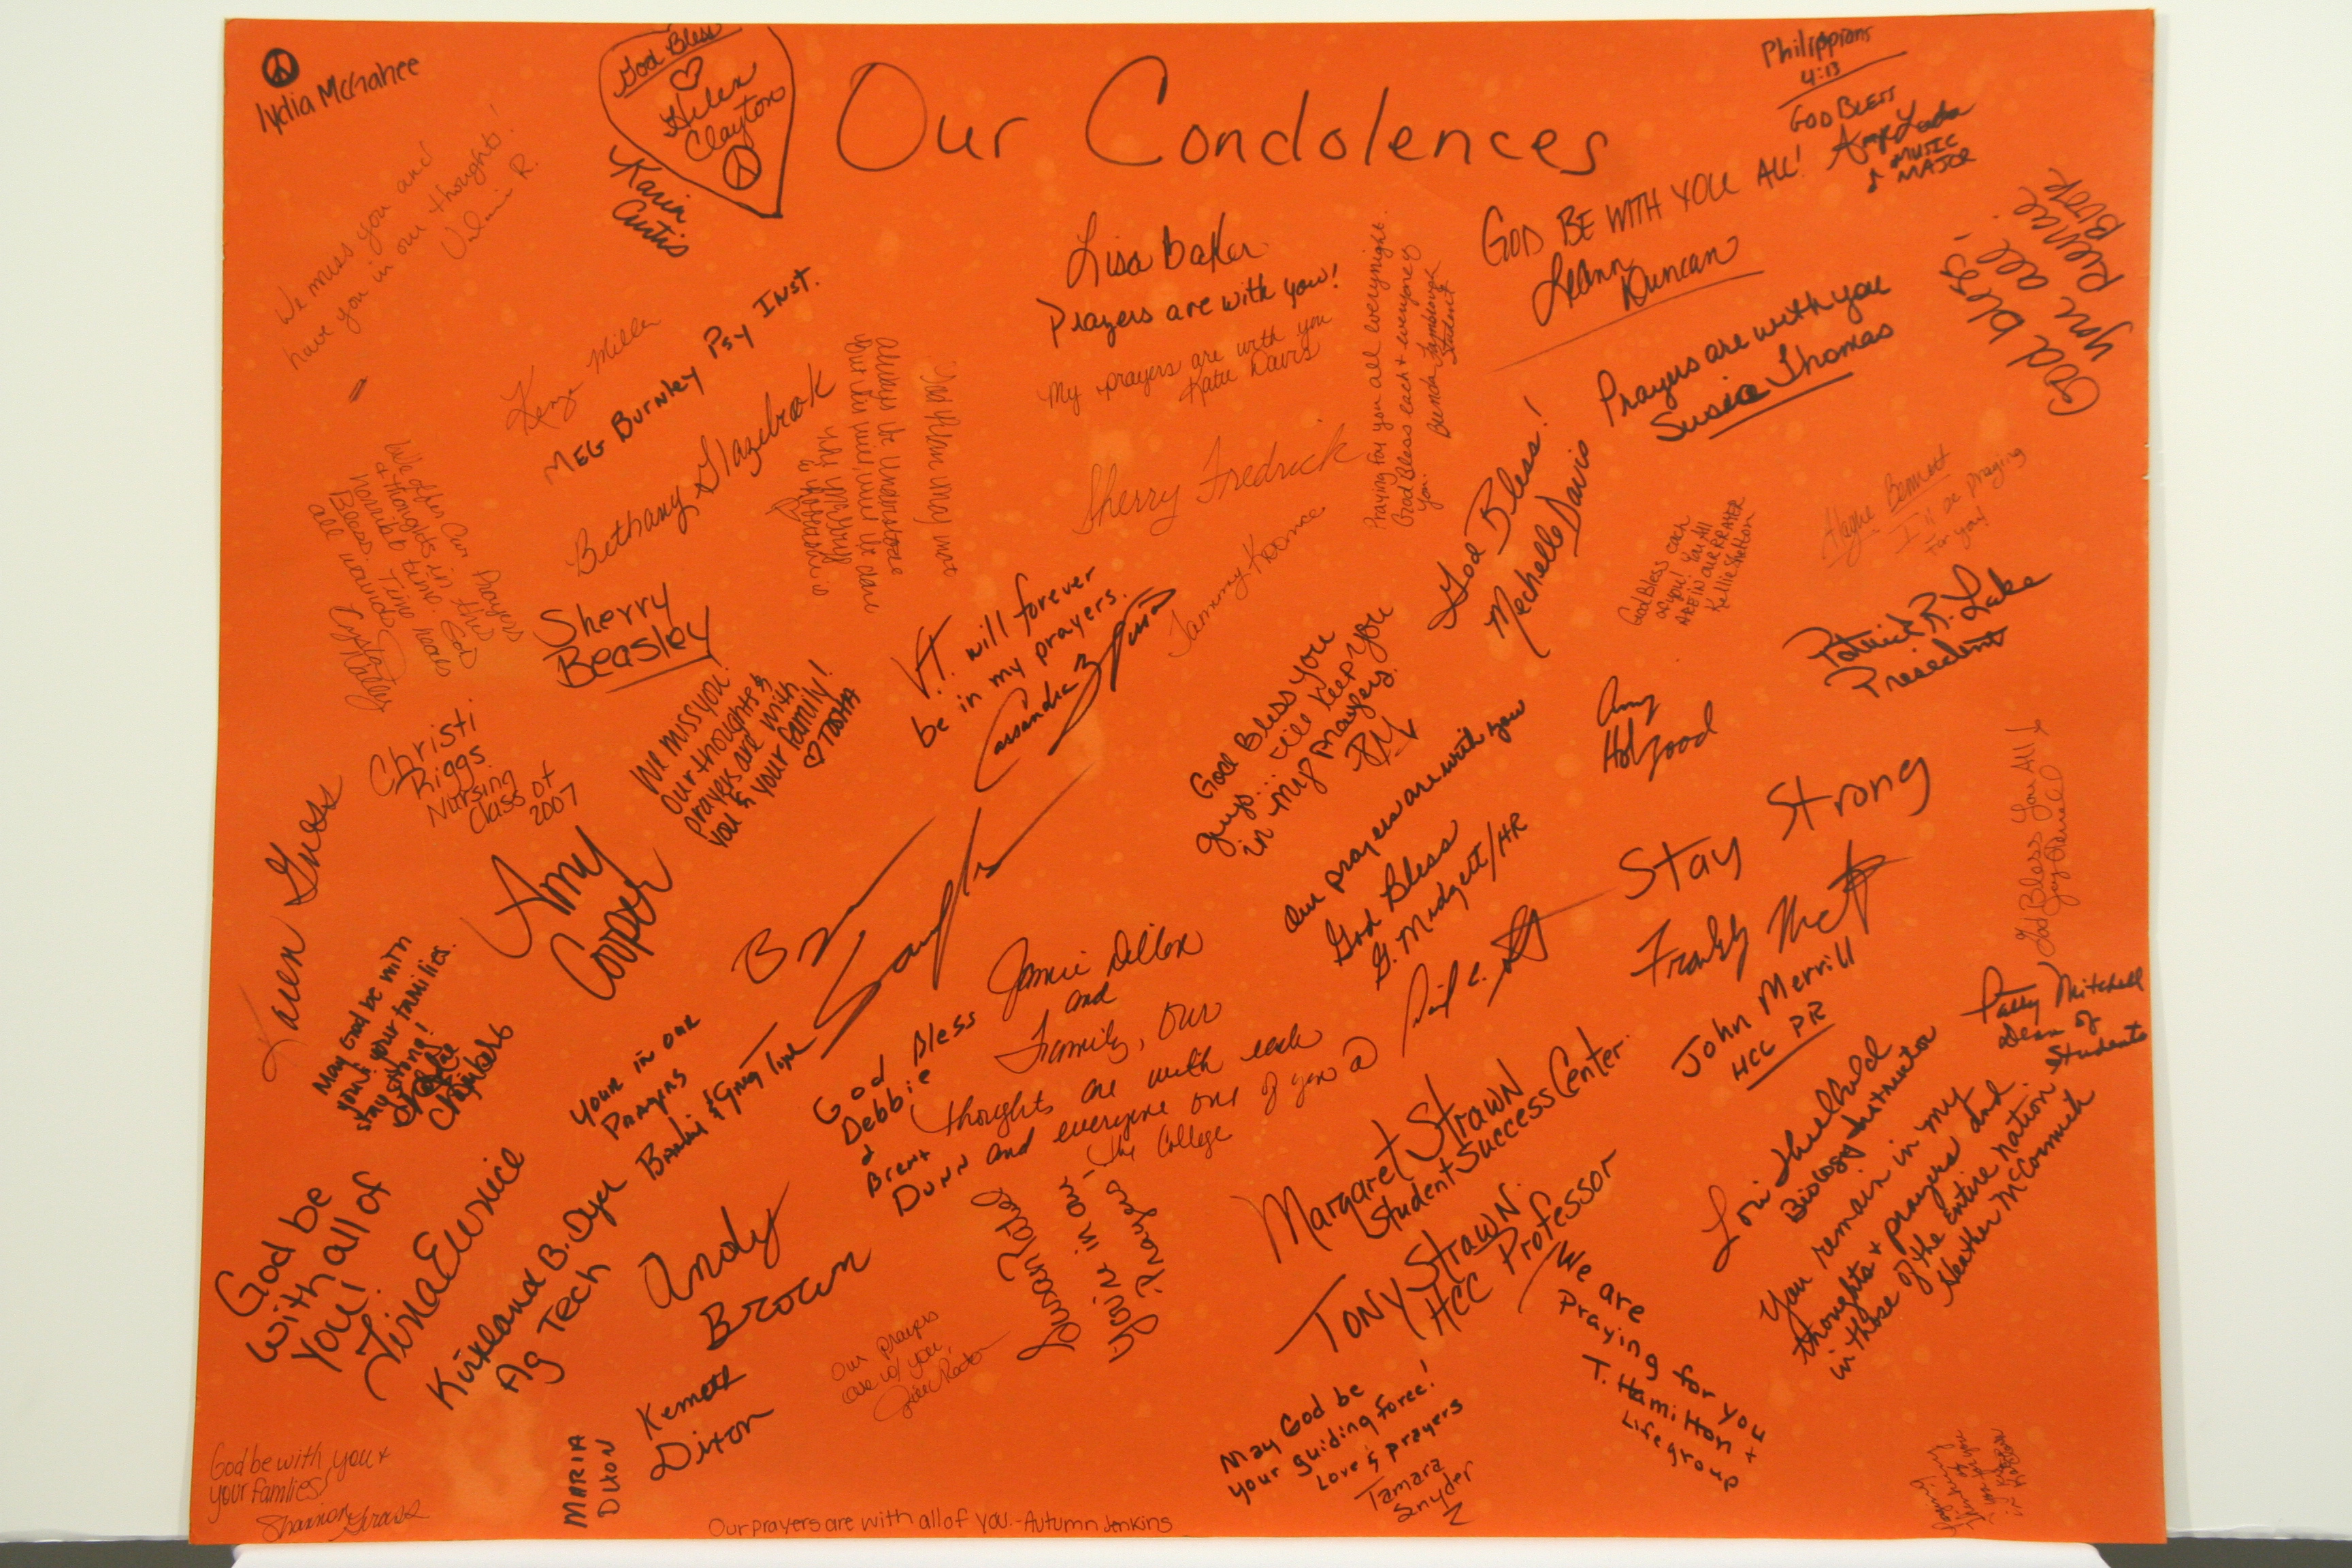 Our Condolences
Lydia McGhahee
God Bless
Helen
Clayton
Karin
Curtis
We miss you and
have you in our thoughts!
Valerie R.
Philippians
4:13
GOD BLESS
MUSIC
MAJOR
GOD BE WITH YOU ALL!
LeAnn
Duncan
God bless
you all!
Lisa Baker
Prayers are with you!
My prayers are with you
Katie Davis
Praying for you all everynight.
God Bless each + everyone
you.
Brenda
Student
Prayers are with you
Susie Thomas
Kenze Miller
MEG BURNLEY PSY INST.
Bethany Glazebrook
God's plan may not
always be understood
but
why
Sherry Fredrick
Tammy Koonce
God Bless!
Mechelle Davis
God Bless each
of you! You All
ARE in OUR PRAYER
Kellie Shelton
Hague Bennett
I'll be praying
for you!
We offer our Prayers
+ thoughts in this
horrible time. God
Bless. Time heals
all wounds
Crystal
Sherry
Beasley
V.T. will forever
be in my prayers.
Cassandra
Patrick R. Lake
President
Christi
Riggs
Nursing
Class of
2007
We miss you.
Our thoughts &
prayers are with
you & your family!
TOSHA
God Bless you
guys... i'll keep you
in my prayers.
Amy
Hobgood
Our prayers are with you
God Bless
G. Midgett/HR
Stay Strong
God Bless You All!
Karen Guess
Amy
Cooper
May God be with
you & your families.
stay strong!
Your in our
Prayers
God Bless
Debbie
&
Brent
Dunn and
Jamie Dillon
and
Family, our
thoughts are with each
and everyone one of you @
the College
John Merrill
HCC PR
Patty Mitchell
Dean of
Students
Lori Thelkeld
Biology Instructor
You remain in my
thoughts + prayers and
in those of the entire nation.
Heather McCormick
Margaret Strawn
Student Success Center
TONY STRAWN
HCC Professor
We are
Praying for you
T. Hamilton +
Life group
God be
with all of
you!
Tina Eunice
Kirkland B. Dyer
Ag Tech
Andy
Brown
Lauren
You're in our
Prayers
Our prayers
are w/ you,
Kenneth
Dixon
MARIA
DIXON
May God be
your guiding force!
Love & prayers
Tamara
Snyder
God be with you +
your families!
Shannon
Our prayers are with all of you. -Autumn Jenkins